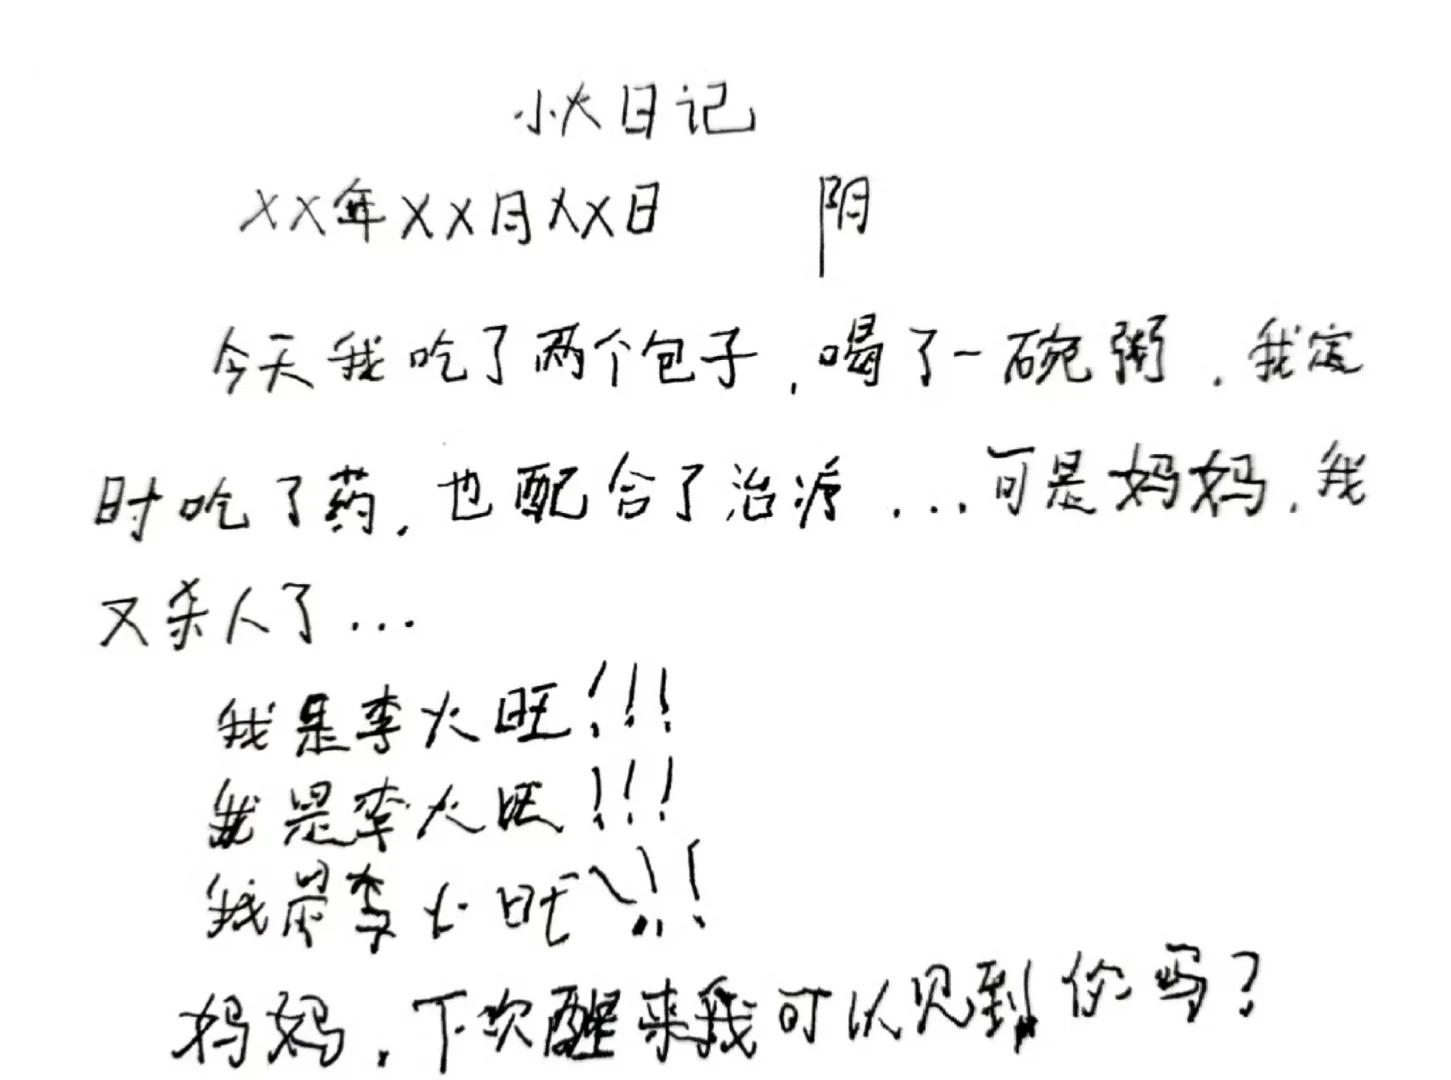 小火日记
XX年XX月XX日 阴
今天我吃了两个包子,喝了一碗粥,我定
时吃了药,也配合了治疗...可是妈妈,我
又杀人了...
我是李火旺!!!
我是李火旺!!!
我是李火旺!!!
妈妈,下次醒来我可以见到你吗?